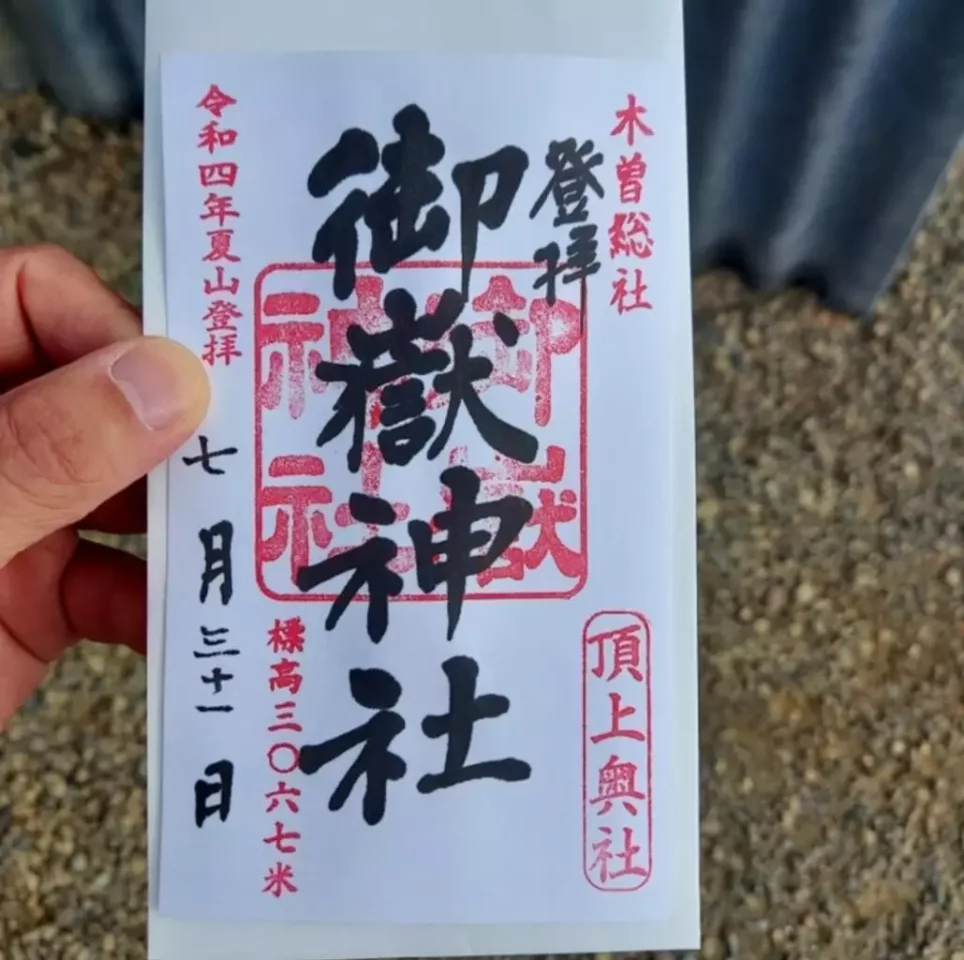 木曽総社
登拝
頂上奥社
御嶽神社
御嶽神社
標高三〇六七米
令和四年夏山登拝
七月三十一日